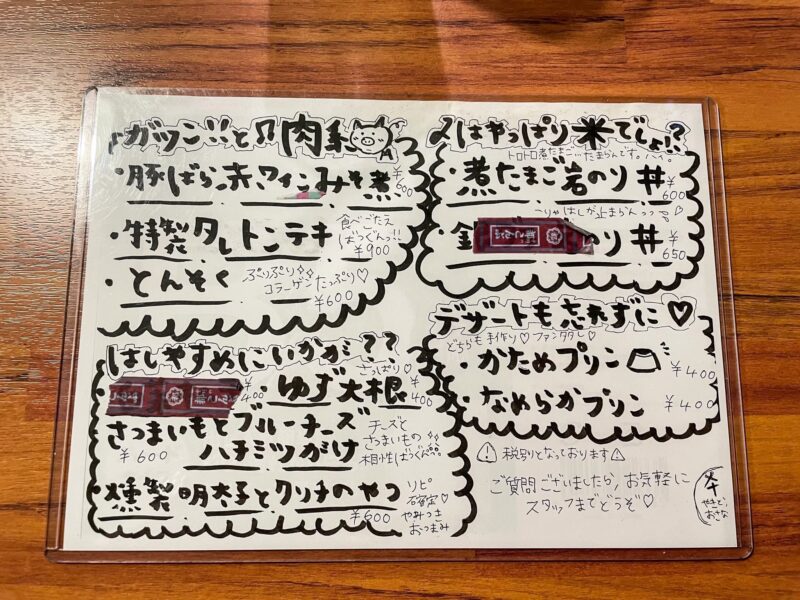 ガツン!!と肉系
・豚ばら赤ワインみそ煮 ¥600
・特製タレトンテキ
食べごたえ
ばつぐんっ!!
¥900
・とんそく
ぷりぷり
コラーゲンたっぷり♡
¥600
はしやすめにいかが??
¥400
さっぱり♡
・ゆず大根 ¥400
さつまいもとブルーチーズ
ハチミツがけ
¥600
チーズと
さつまいもの
相性ばつぐん
・燻製明太子とクリチのやつ
¥600
リピ
確定♡
やみつき
おつまみ
〆はやっぱり米でしょ!?
トロトロ煮たまご…たまらんです。ハイ。
・煮たまご岩のり丼 ¥600
はしが止まらんっっ
のり丼 ¥650
デザートも忘れずに♡
どちらも手作り♡
・かためプリン ¥400
・なめらかプリン ¥400
税別となっております
ご質問ございましたら、お気軽に
スタッフまでどうぞ♡